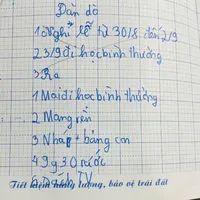 Dặn dò
1 Nghỉ lễ từ 30/8 đến 2/9
2 3/9 đi học bình thường
3 Ra
1 Mai đi học bình thường
2 Mang rèn
3 Nháp + bảng con
4 9g30 rước
Tiết kiệm năng lượng, bảo vệ trái đất